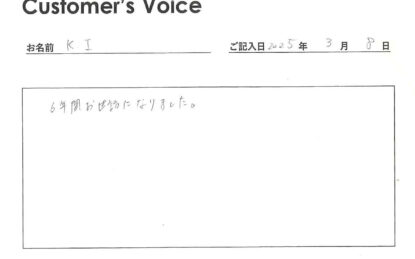 Customer's Voice
お名前 K I ご記入日 2025 年 3 月 8 日
6年間お世話になりました。